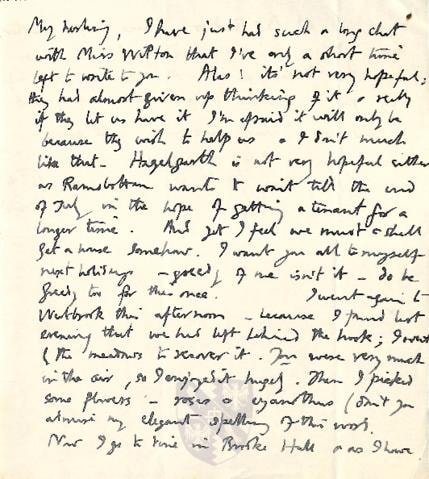 My darling, I have just had such a long chat
with Miss Wilton that I've only a short time
left to write to you. Alas! its' not very hopeful;
they had almost given up thinking of it & really
if they let us have it I'm afraid it will only be
because they wish to help us & I don't much
like that - Hazelgarth is not very hopeful either
as Ramsbottom wants to wait till the end
of July in the hope of getting a tenant for a
longer time. And yet I feel we must & shall
get a house somehow. I want you all to myself
next holidays - greedy of me isn't it - do be
greedy too for this once. I went again to
Westbrook this afternoon - because I found last
evening that we had left behind the book; I went
the meadows to recover it. You were very much
in the air, so I enjoyed it hugely. Then I picked
some flowers - roses & cyanothus (don't you
admire my elegant spelling of this word.
Now I go to dine in Brooke Hall & as I have